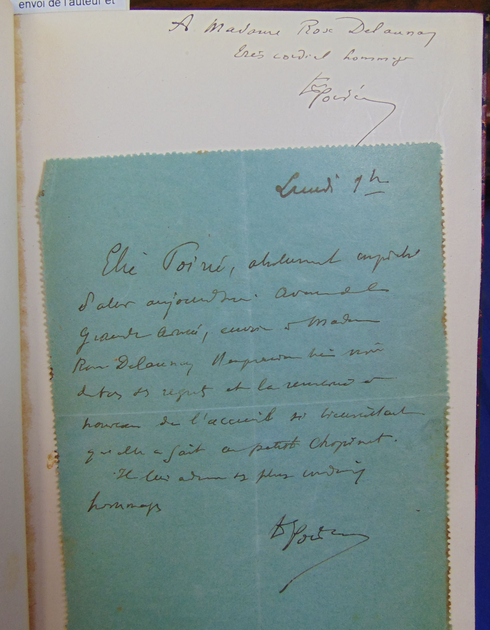 envoi de l'auteur et
A Madame Rose Delaunay
très cordial hommage
Lundi 1h
Elie Poiré, absolument empêché
d'aller aujourd'hui Avenue de la
Grande Armée, envoie à Madame
Rose Delaunay l'expression bien
de tous ses regrets et la remercie à
nouveau de l'accueil si bienveillant
qu'elle a fait au petit Chopinet.
Il lui adresse ses plus cordiaux
hommages